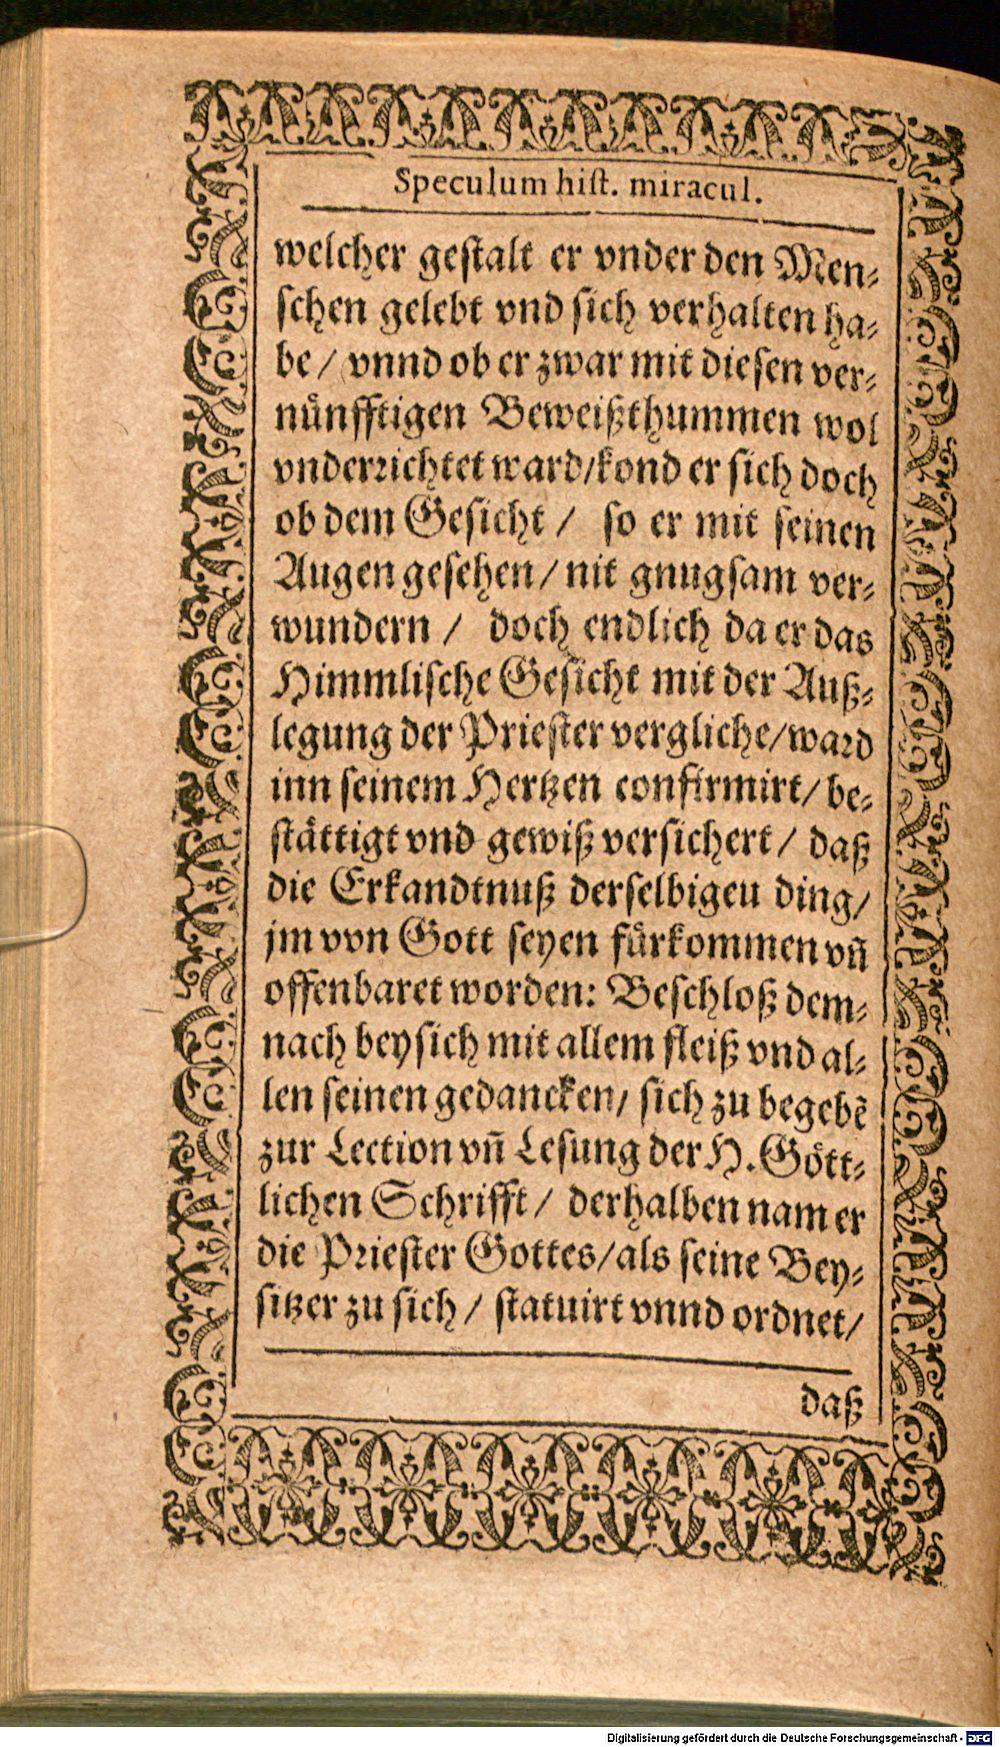 Speculum hist. miracul.
welcher gestalt er vnder den Men-
schen gelebt vnd sich verhalten ha-
be / vnnd ob er zwar mit diesen ver-
nünfftigen Beweißthummen wol
vnderrichtet ward/kond er sich doch
ob dem Gesicht / so er mit seinen
Augen gesehen/ nit gnugsam ver-
wundern / doch endlich da er das
Himmlische Gesicht mit der Auß-
legung der Priester vergliche/ward
inn seinem Hertzen confirmirt/ be-
stättigt vnd gewiß versichert/ daß
die Erkandtnuß derselbigeu ding/
jm vvn Gott seyen fürkommen vñ
offenbaret worden: Beschloß dem-
nach bey sich mit allem fleiß vnd al-
len seinen gedancken/ sich zu begebẽ
zur Lection vñ Lesung der H. Gött-
lichen Schrifft/ derhalben nam er
die Priester Gottes/als seine Bey-
sitzer zu sich / statuirt vnnd ordnet/
daß
Digitalisierung gefördert durch die Deutsche Forschungsgemeinschaft - DFG